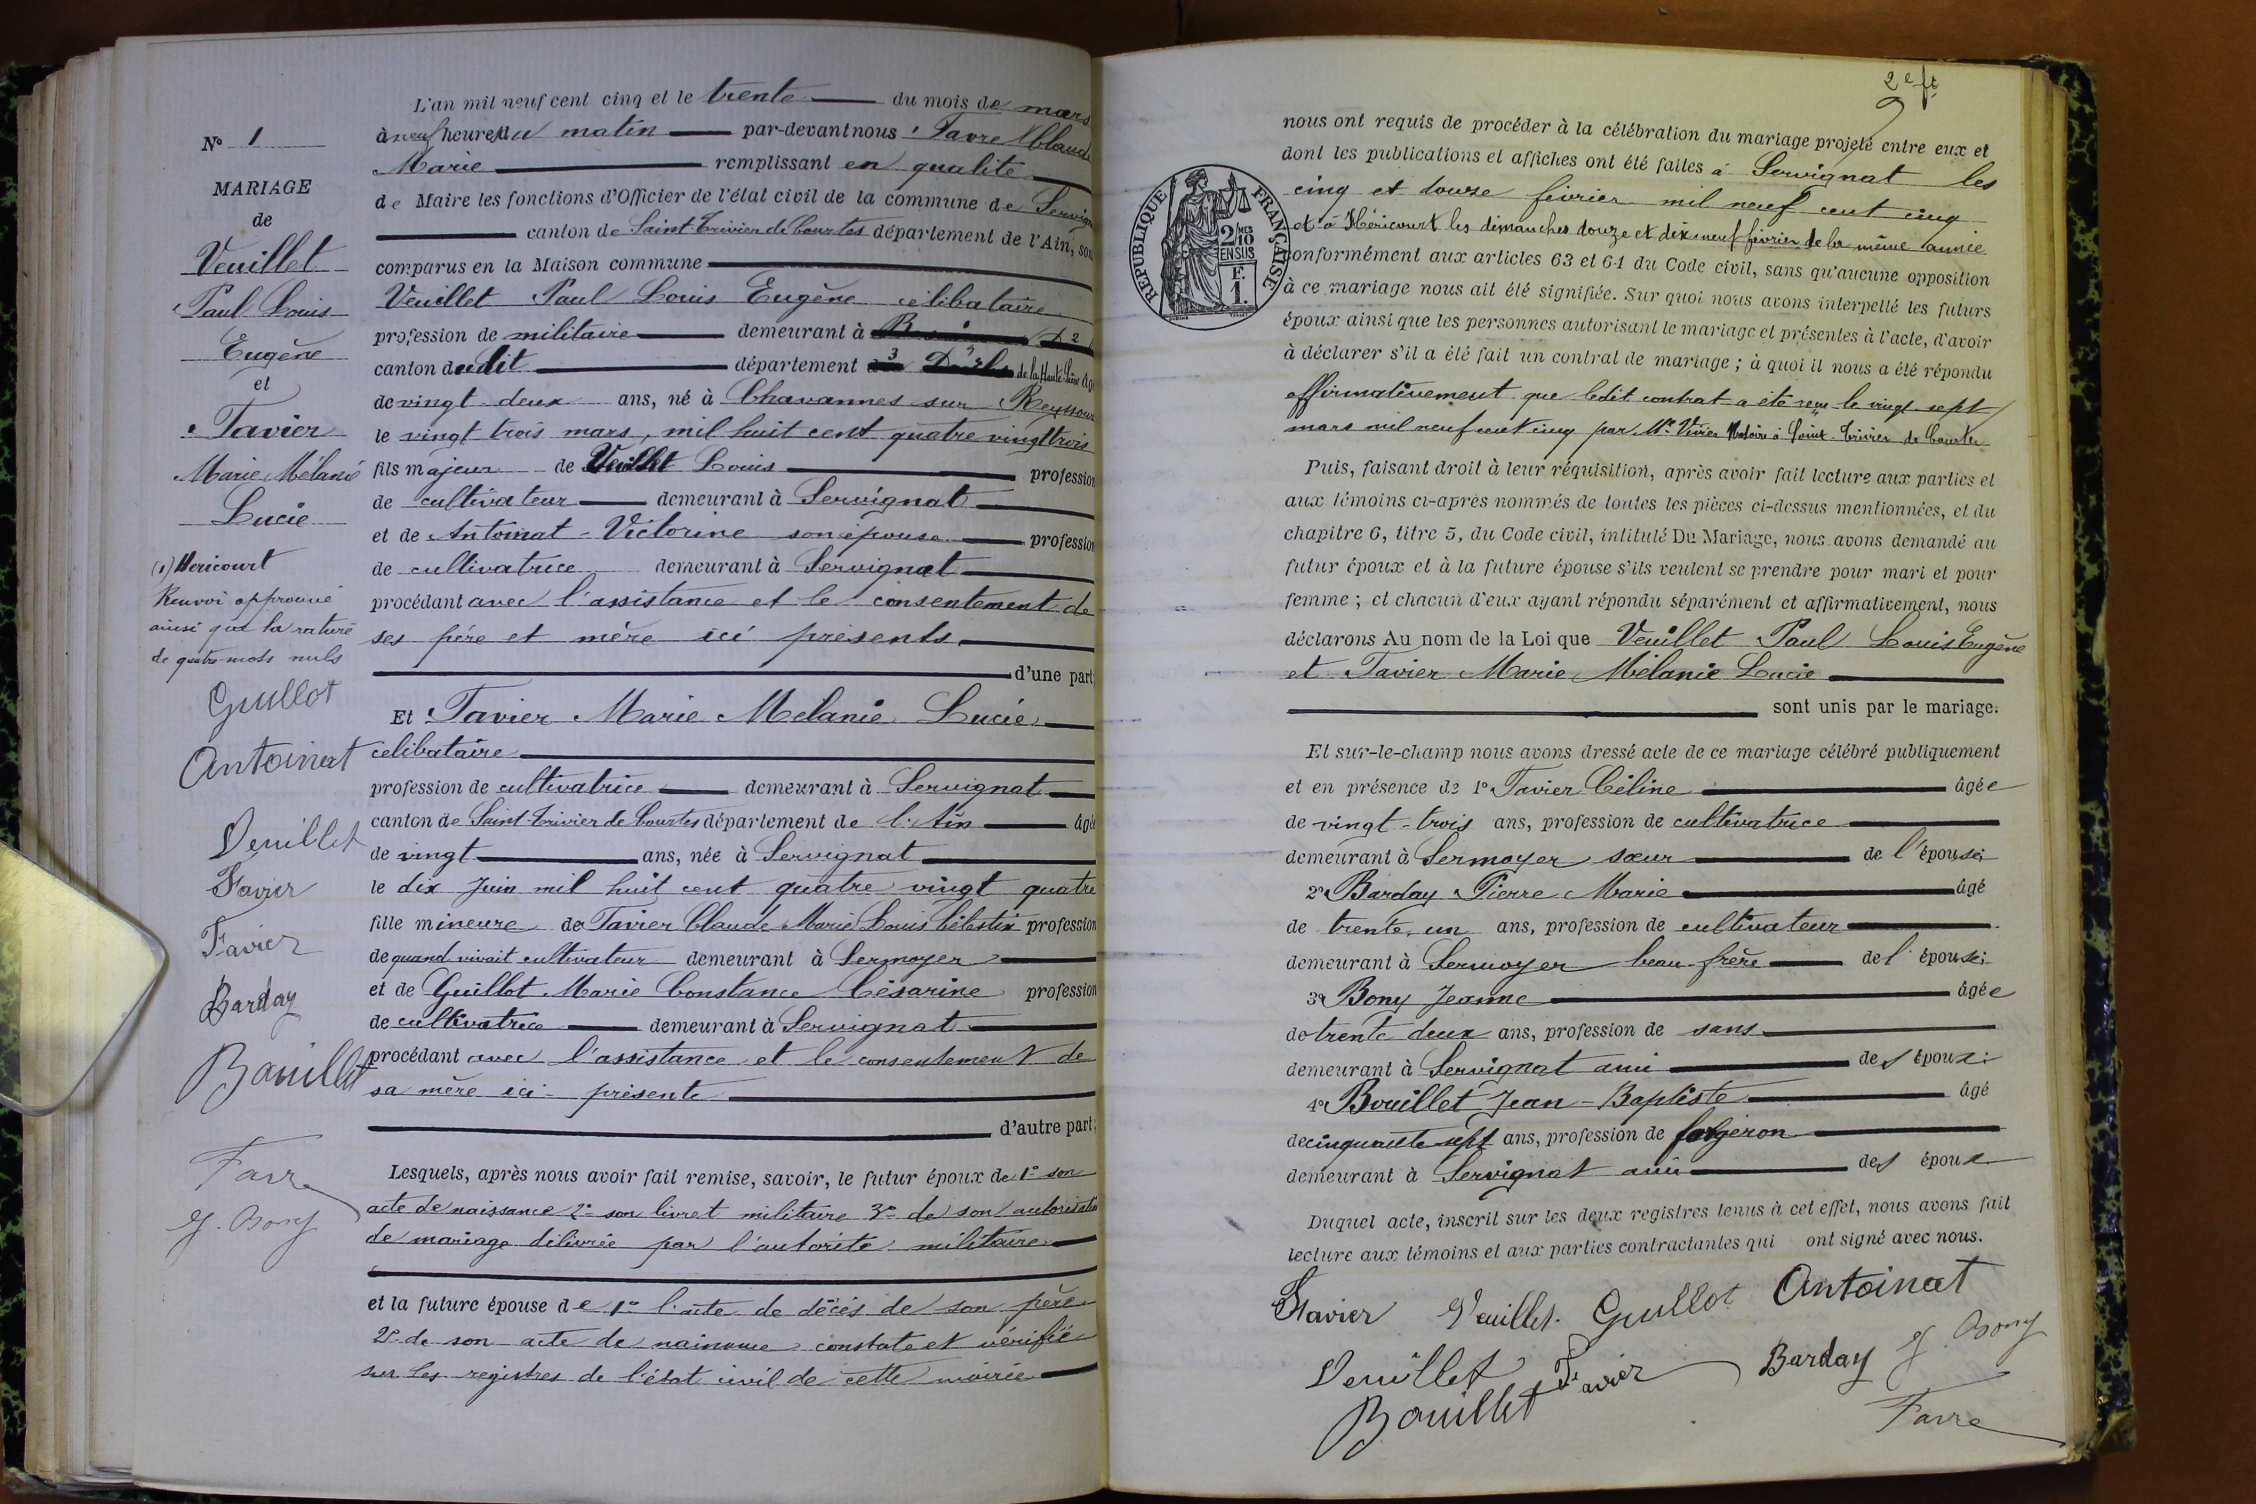 N° 1
MARIAGE
de
Veuillet
Paul Louis
Eugène
et
Favier
Marie Mélanie
Lucie
(1) Hericourt
Renvoi approuvé
ainsi que la rature
de quatre mots nuls
Guillot
Antoinat
Veuillet
Favier
Favier
Barday
Bouillet
Favre
J. Bony
L'an mil neuf cent cinq et le trente du mois de mars
à neuf heures du matin par-devant nous Favre Claude
Marie remplissant en qualité
de Maire les fonctions d'Officier de l'état civil de la commune de Servignat
canton de Saint-Trivier de Courtes département de l'Ain, sont
comparus en la Maison commune
Veuillet Paul Louis Eugène célibataire
profession de militaire demeurant à
canton dudit département de la Haute Saône âgé
de vingt deux ans, né à Chavannes sur Reyssouze
le vingt trois mars, mil huit cent quatre vingt trois
fils majeur de Veuillet Louis profession
de cultivateur demeurant à Servignat
et de Antoinat Victorine son épouse profession
de cultivatrice demeurant à Servignat
procédant avec l'assistance et le consentement de
ses père et mère ici présents
d'une part;
Et Favier Marie Mélanie Lucie
célibataire
profession de cultivatrice demeurant à Servignat
canton de Saint-Trivier de Courtes département de l'Ain âgée
de vingt ans, née à Servignat
le dix Juin mil huit cent quatre vingt quatre
fille mineure de Favier Claude Marie Louis Célestin profession
de quand vivait cultivateur demeurant à Sermoyer
et de Guillot Marie Constance Césarine profession
de cultivatrice demeurant à Servignat
procédant avec l'assistance et le consentement de
sa mère ici présente
d'autre part;
Lesquels, après nous avoir fait remise, savoir, le futur époux de 1° son
acte de naissance 2° son livret militaire 3° de son autorisation
de mariage délivrée par l'autorité militaire
et la future épouse de 1° l'acte de décès de son père
2° de son acte de naissance constaté et vérifié
sur les registres de l'état civil de cette mairie
2e ft
nous ont requis de procéder à la célébration du mariage projeté entre eux et
dont les publications et affiches ont été faites à Servignat les
cinq et douze février mil neuf cent cinq
et à Héricourt les dimanches douze et dix neuf février de la même année
conformément aux articles 63 et 64 du Code civil, sans qu'aucune opposition
à ce mariage nous ait été signifiée. Sur quoi nous avons interpellé les futurs
époux ainsi que les personnes autorisant le mariage et présentes à l'acte, d'avoir
à déclarer s'il a été fait un contrat de mariage ; à quoi il nous a été répondu
affirmativement que ledit contrat a été reçu le vingt sept
mars mil neuf cent cinq par Me Notaire à Saint-Trivier de Courtes
Puis, faisant droit à leur réquisition, après avoir fait lecture aux parties et
aux témoins ci-après nommés de toutes les pièces ci-dessus mentionnées, et du
chapitre 6, titre 5, du Code civil, intitulé Du Mariage, nous avons demandé au
futur époux et à la future épouse s'ils veulent se prendre pour mari et pour
femme ; et chacun d'eux ayant répondu séparément et affirmativement, nous
déclarons Au nom de la Loi que Veuillet Paul Louis Eugène
et Favier Marie Mélanie Lucie
sont unis par le mariage.
Et sur-le-champ nous avons dressé acte de ce mariage célébré publiquement
et en présence de 1° Favier Céline âgée
de vingt-trois ans, profession de cultivatrice
demeurant à Sermoyer sœur de l'épouse;
2° Barday Pierre Marie âgé
de trente un ans, profession de cultivateur
demeurant à Sermoyer beau-frère de l'épouse;
3° Bony Jeanne âgée
de trente deux ans, profession de sans
demeurant à Servignat amie des époux;
4° Bouillet Jean-Baptiste âgé
de cinquante sept ans, profession de forgeron
demeurant à Servignat ami des époux
Duquel acte, inscrit sur les deux registres tenus à cet effet, nous avons fait
lecture aux témoins et aux parties contractantes qui ont signé avec nous.
Favier Veuillet Guillot Antoinat
Veuillet Favier Barday J. Bony
Bouillet Favre
REPUBLIQUE FRANÇAISE
2/10 MES
EN SUS
F.
1.